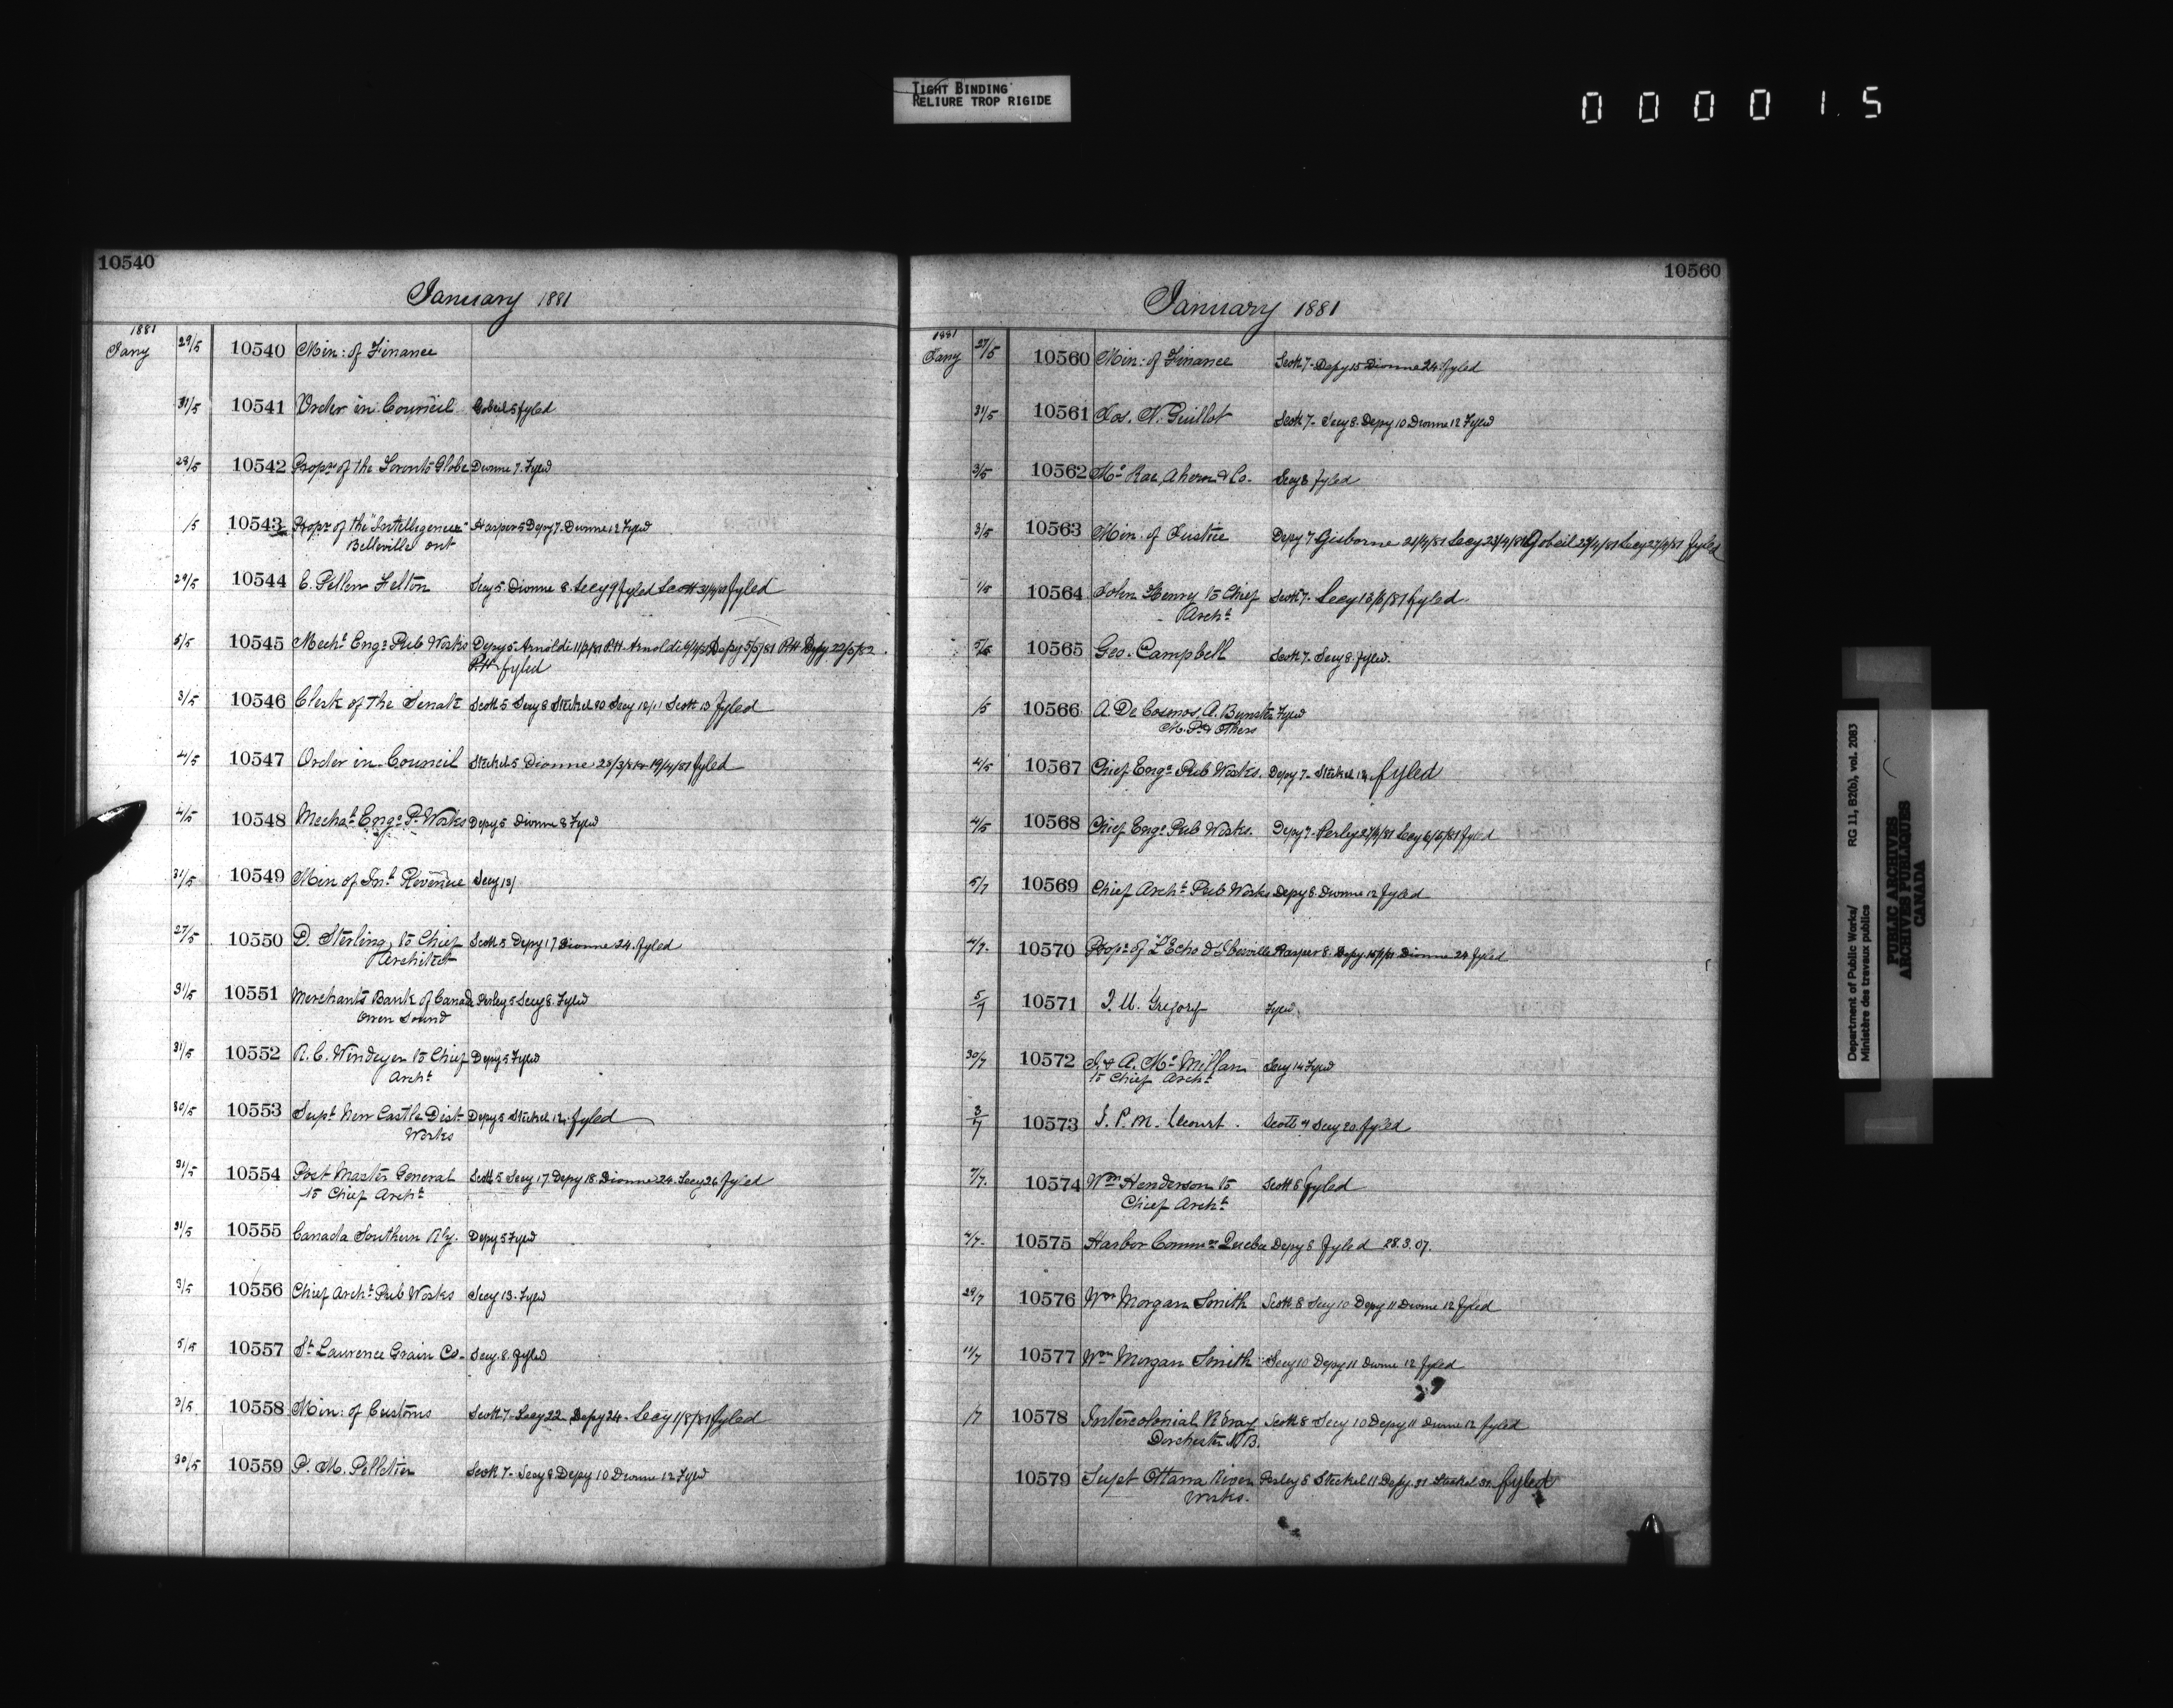 TIGHT BINDING
RELIURE TROP RIGIDE
000015
10540
January 1881
1881
Jany 29/5 10540 Min: of Finance
31/5 10541 Order in Council Gobeil 5 fyled
28/5 10542 Propr of the Toronto Globe Dionne 7. Fyled
/5 10543 Propr of the "Intelligencer" Harper 5 Depy 7. Dionne 12 Fyled
Belleville Ont
29/5 10544 E. Pellew Felton Secy 5. Dionne 8. Secy 9 fyled Scott fyled
5/5 10545 Mechl Engr Pub Works Depy 5. Arnoldi Arnoldi Depy 5/5/81 Depy 22/5/82
fyled
3/5 10546 Clerk of the Senate Scott 5 Secy 8 Steckel 10 Secy Scott 13 fyled
4/5 10547 Order in Council Steckel 5 Dionne 19/4/81 fyled
4/5 10548 Mechal Engr P. Works Depy 5 Dionne 8 Fyled
31/5 10549 Min of Inl Revenue Secy 13/
27/5 10550 D. Sterling to Chief Scott 5 Depy 17 Dionne 24. fyled
Architect
31/5 10551 Merchants Bank of Canada Perley 5 Secy 8. Fyled
Owen Sound
31/5 10552 R. C. Windeyer to Chief Depy 5 Fyled
Archt
30/5 10553 Supt New Castle Dist Depy 5 Steckel 12, fyled
Works
31/5 10554 Post Master General Scott 5 Secy 17 Depy 18. Dionne 24. Secy 26 fyled
to Chief Archt
31/5 10555 Canada Southern Rly. Depy 5 Fyled
3/5 10556 Chief Archt Pub Works Secy 13. Fyled
5/5 10557 St Laurence Grain Co. Secy 8. fyled
3/5 10558 Min: of Customs Scott 7- Secy 22 Depy 24 - Secy 1/8/81 fyled
30/5 10559 P. M. Pelletier Scott 7- Secy 8 Depy 10 Dionne 12 Fyled
10560
January 1881
1881
Jany 27/5 10560 Min: of Finance Scott 7- Depy 15 Dionne 24. fyled
31/5 10561 Jos. N. Guillot Scott 7- Secy 8. Depy 10 Dionne 12 Fyled
3/5 10562 Mc Rae, Ahern & Co. Secy 8 fyled
3/5 10563 Min. of Justice Depy 7 Gisborne 21/4/81 Secy 23/4/81 Gobeil Secy fyled
1/5 10564 John Henry to Chief Scott 7- Secy fyled.
Archt
5/5 10565 Geo. Campbell Scott 7- Secy 8. fyled.
/5 10566 A. De Cosmos, A. Bunster Fyled
M.P. & Others
4/5 10567 Chief Engr Pub Works. Depy 7- Steckel 12, fyled
4/5 10568 Chief Engr Pub Works. Depy 7- Perley Secy fyled
5/7 10569 Chief Archt Pub Works Depy 8. Dionne 12 fyled
4/7. 10570 Propr of "L'Echo d'Iberville Harper 8. Depy Dionne 24 fyled
5/7 10571 J. U. Gregory Fyled.
30/7 10572 J. & A. Mc Millan Secy 14 Fyled
to Chief Archt
3/7 10573 J. P. M. Lecourt. Scott 9 Secy 20. fyled
7/7. 10574 Wm Henderson to Scott 8 fyled
Chief Archt
4/7. 10575 Harbor Commrs Quebec Depy 8 fyled 28.3.07.
29/7 10576 Wm Morgan Smith Scott 8 Secy 10 Depy 11 Dionne 12 fyled
11/7 10577 Wm Morgan Smith Secy 10 Depy 11 Dionne 12 fyled
/7 10578 Intercolonial Rway Scott 8 Secy 10 Depy 11 Dionne 12 fyled
Dorchester N.B.
10579 Supt Ottawa River Perley 8 Steckel 11 Depy. 31 Steckel 31. fyled
Works.
Department of Public Works/
Ministère des travaux publics
RG 11, B2(b), vol. 2083
PUBLIC ARCHIVES
ARCHIVES PUBLIQUES
CANADA